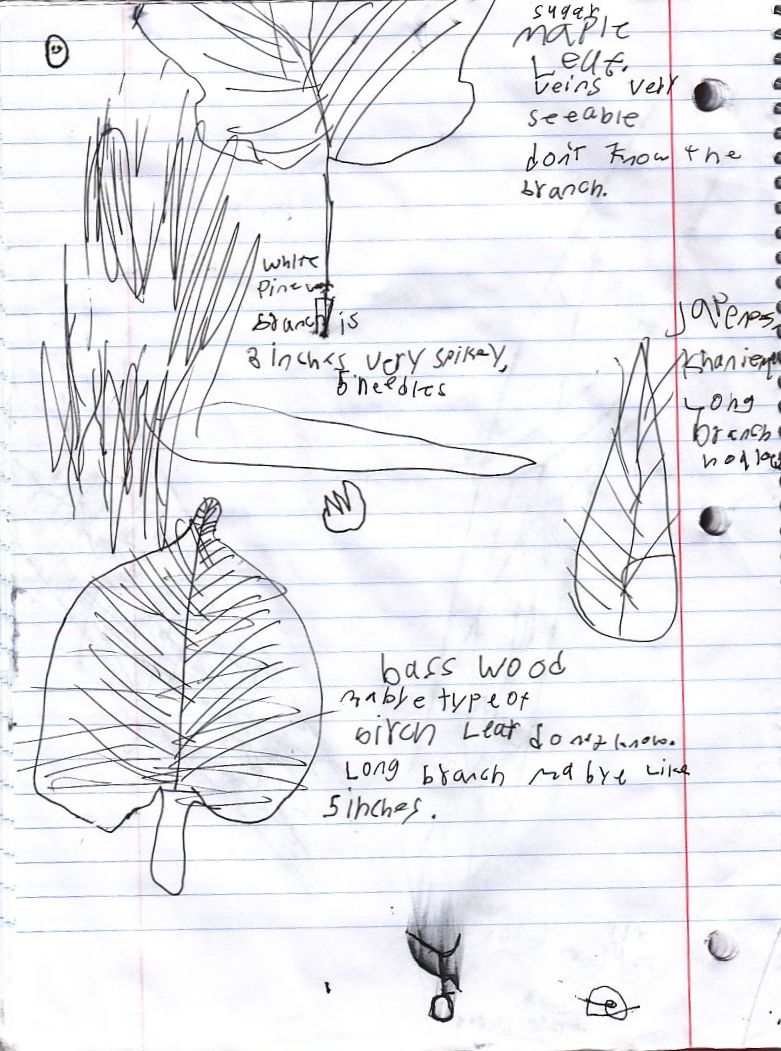 sugar
maple
Leaf.
veins very
seeable
don't know the
branch.
white
pine
branch is
3 inches very spikey,
5 needles
Long
branch
bass wood
mabye type of
birch Leaf don't know.
Long branch mabye Like
5 inches.